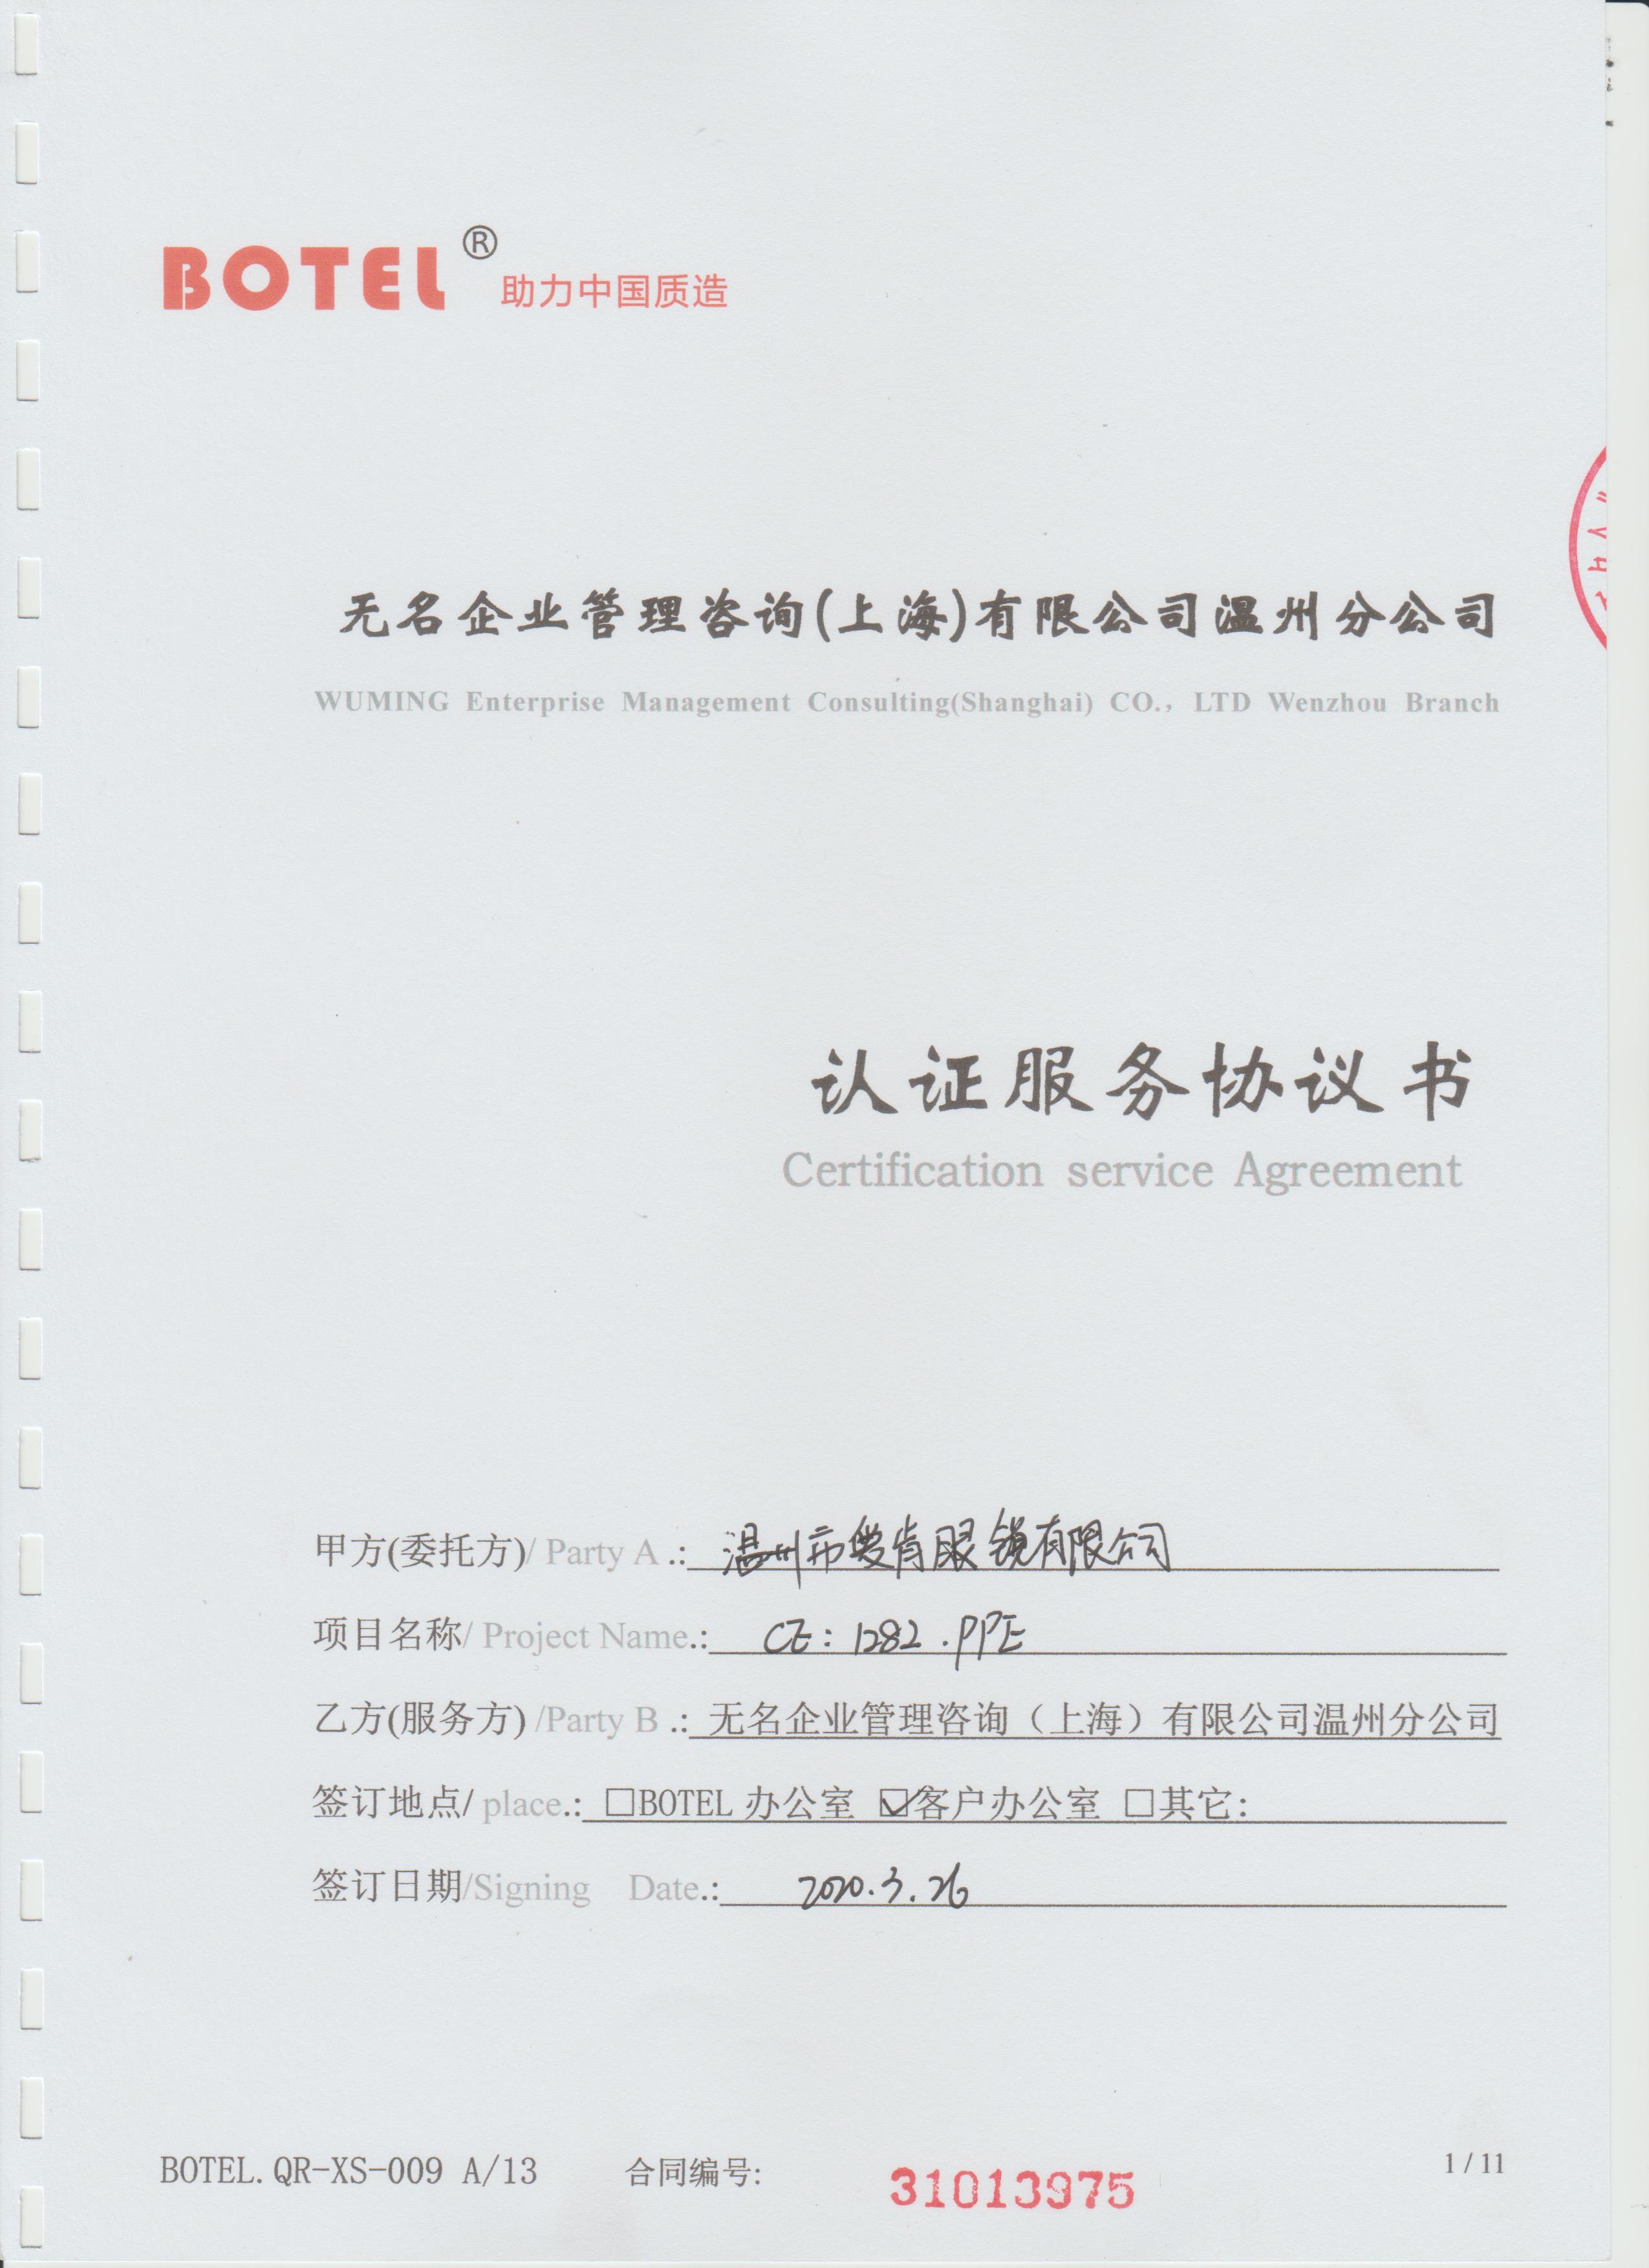 BOTEL® 助力中国质造
无名企业管理咨询(上海)有限公司温州分公司
WUMING Enterprise Management Consulting(Shanghai) CO., LTD Wenzhou Branch
认证服务协议书
Certification service Agreement
甲方(委托方)/ Party A .: 温州市爱肯眼镜有限公司
项目名称/ Project Name.: CE: 1282 . PPE
乙方(服务方) /Party B .: 无名企业管理咨询（上海）有限公司温州分公司
签订地点/ place.: □BOTEL 办公室 ☑客户办公室 □其它:
签订日期/Signing Date.: 2020.3.26
BOTEL.QR-XS-009 A/13 合同编号: 31013975 1 / 11